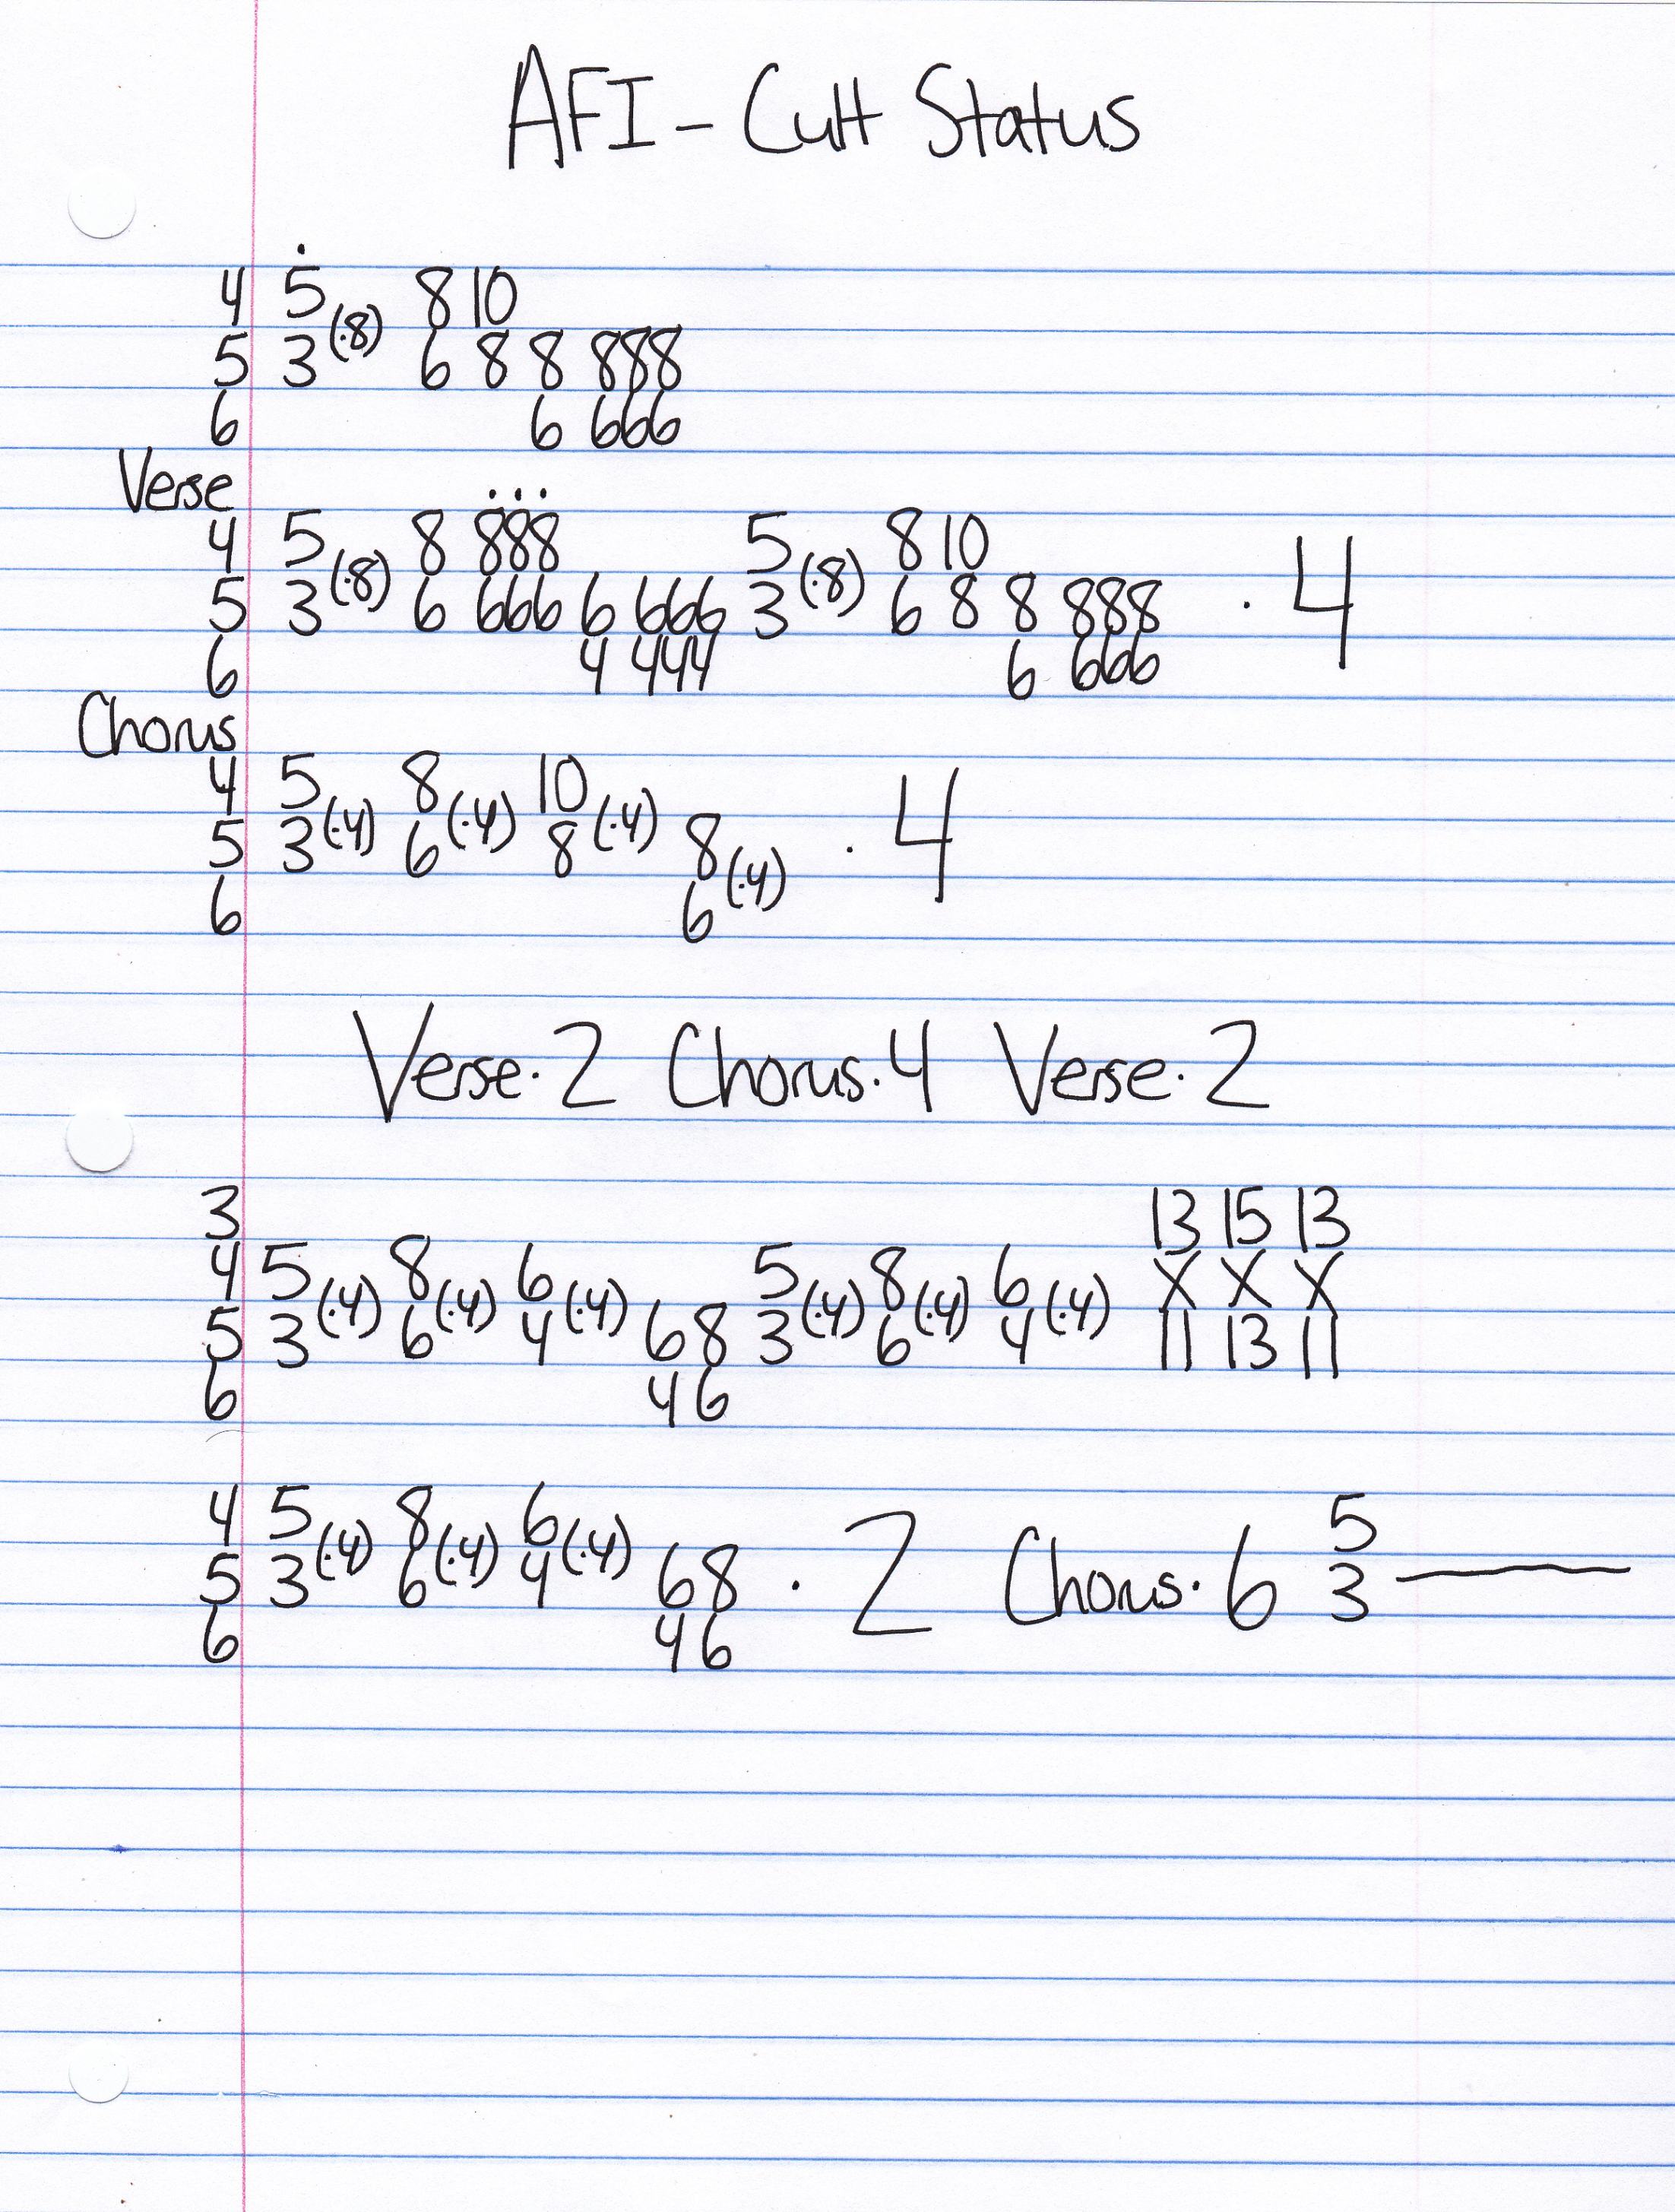 AFI - Cult Status
4 5 8 10
5 3 (·8) 6 8 8 888
6 6 666
Verse
4 5 8 888 5 8 10
5 3 (·8) 6 666 6 666 3 (·8) 6 8 8 888 · 4
6 4 444 6 666
Chorus
4 5 8 10
5 3 (·4) 6 (·4) 8 (·4) 8 (·4) · 4
6 6
Verse·2 Chorus·4 Verse·2
3 13 15 13
4 5 8 6 5 8 6 X X X
5 3 (·4) 6 (·4) 4 (·4) 6 8 3 (·4) 6 (·4) 4 (·4) 11 13 11
6 4 6
4 5 8 6 5
5 3 (·4) 6 (·4) 4 (·4) 6 8 · 2 Chorus·6 3
6 4 6